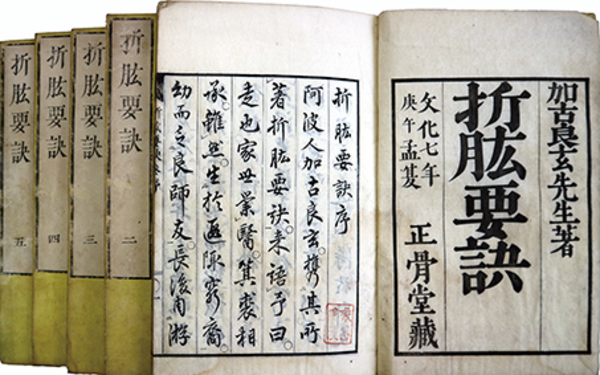 加古良玄先生著
折肱要訣
文化七年
庚午孟夏
正骨堂藏
折肱要訣序
阿波人加古良玄携其所
著折肱要訣来語予曰
走也家世業醫箕裘相
承雖然生於遐陬窮裔
幼而乏良師友長後游
折肱要訣 二
折肱要訣 三
折肱要訣 四
折肱要訣 五